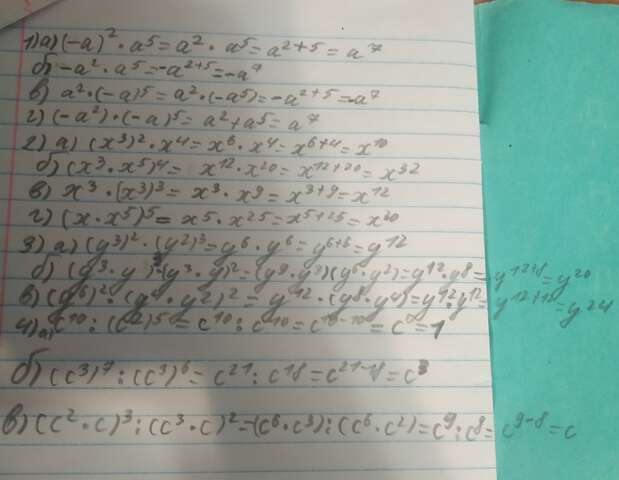 1) а) (-a)² · a⁵ = a² · a⁵ = a²⁺⁵ = a⁷
б) -a² · a⁵ = -a²⁺⁵ = -a⁷
в) a² · (-a)⁵ = a² · (-a⁵) = -a²⁺⁵ = -a⁷
г) (-a²) · (-a)⁵ = a² + a⁵ = a⁷
2) а) (x³)² · x⁴ = x⁶ · x⁴ = x⁶⁺⁴ = x¹⁰
б) (x³ · x⁵)⁴ = x¹² · x²⁰ = x¹²⁺²⁰ = x³²
в) x³ · (x³)³ = x³ · x⁹ = x³⁺⁹ = x¹²
г) (x · x⁵)⁵ = x⁵ · x²⁵ = x⁵⁺²⁵ = x³⁰
3) а) (y³)² · (y²)³ = y⁶ · y⁶ = y⁶⁺⁶ = y¹²
б) (y³ · y)³ · (y³ · y)² = (y⁹ · y³)(y⁶ · y²) = y¹² · y⁸ = y¹²⁺⁸ = y²⁰
в) (y⁶)² · (y⁴ · y²)² = y¹² · (y⁸ · y⁴) = y¹² · y¹² = y¹²⁺¹² = y²⁴
4) а) c¹⁰ : (c²)⁵ = c¹⁰ : c¹⁰ = c¹⁰⁻¹⁰ = c⁰ = 1
б) (c³)⁷ : (c³)⁶ = c²¹ : c¹⁸ = c²¹⁻¹⁸ = c³
в) (c² · c)³ : (c³ · c)² = (c⁶ · c³) : (c⁶ · c²) = c⁹ : c⁸ = c⁹⁻⁸ = c